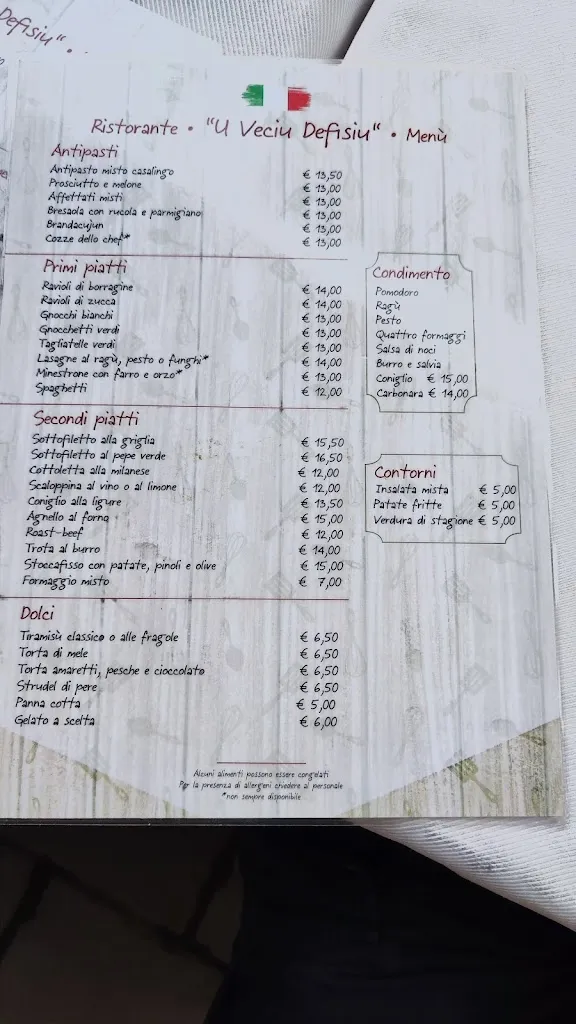 Defisiu" •
Ristorante • "U Veciu Defisiu" • Menù
Antipasti
Antipasto misto casalingo € 13,50
Prosciutto e melone € 13,00
Affettati misti € 13,00
Bresaola con rucola e parmigiano € 13,00
Brandacujun € 13,00
Cozze dello chef* € 13,00
Primi piatti
Ravioli di borragine € 14,00
Ravioli di zucca € 14,00
Gnocchi bianchi € 13,00
Gnocchetti verdi € 13,00
Tagliatelle verdi € 13,00
Lasagne al ragù, pesto o funghi* € 14,00
Minestrone con farro e orzo* € 13,00
Spaghetti € 12,00
Condimento
Pomodoro
Ragù
Pesto
Quattro formaggi
Salsa di noci
Burro e salvia
Coniglio € 15,00
Carbonara € 14,00
Secondi piatti
Sottofiletto alla griglia € 15,50
Sottofiletto al pepe verde € 16,50
Cottoletta alla milanese € 12,00
Scaloppina al vino o al limone € 12,00
Coniglio alla ligure € 13,50
Agnello al forno € 15,00
Roast-beef € 12,00
Trota al burro € 14,00
Stoccafisso con patate, pinoli e olive € 15,00
Formaggio misto € 7,00
Contorni
Insalata mista € 5,00
Patate fritte € 5,00
Verdura di stagione € 5,00
Dolci
Tiramisù classico o alle fragole € 6,50
Torta di mele € 6,50
Torta amaretti, pesche e cioccolato € 6,50
Strudel di pere € 6,50
Panna cotta € 5,00
Gelato a scelta € 6,00
Alcuni alimenti possono essere congelati
Per la presenza di allergeni chiedere al personale
*non sempre disponibile